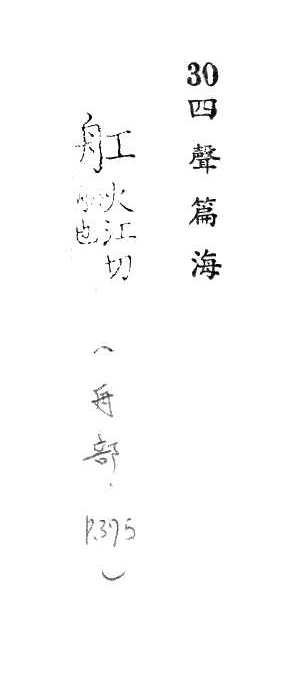 30四聲篇海
舡火江切
也
(舟部.P.375)